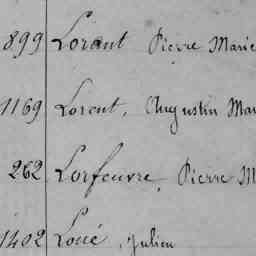 899 Lorant Pierre Marie
1169 Lorent, Augustin Mar
262 Lorfeuvre, Pierre M
1402 Loué, Julien